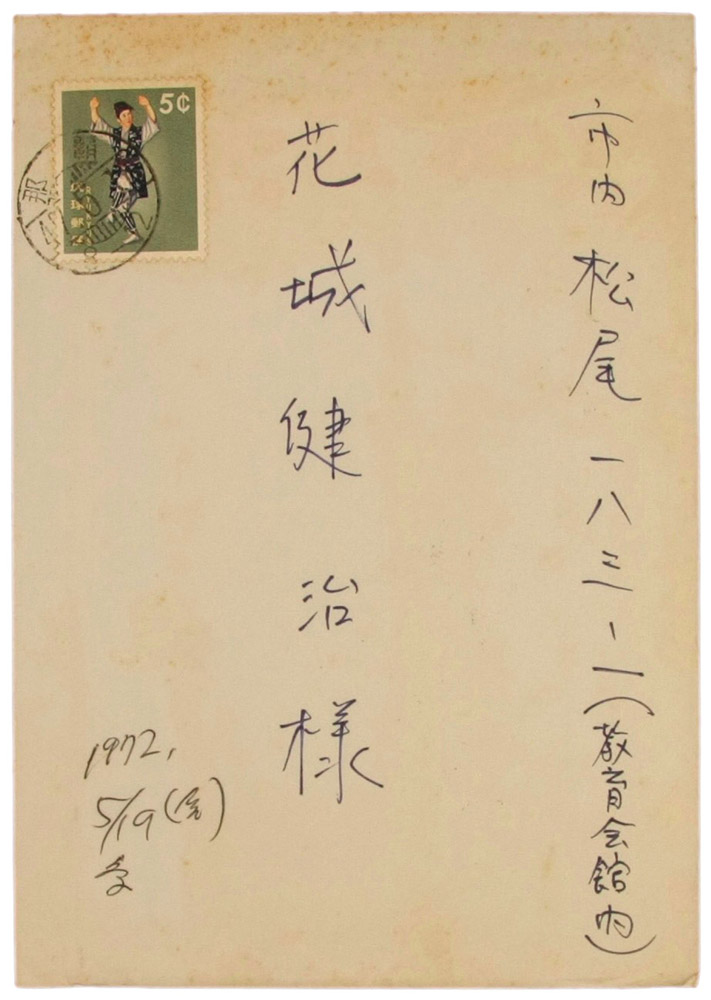 市内 松尾 一八三-一(教育会館内)
花城健治様
5¢
琉球郵便
那
1972,
5/19(金)
受